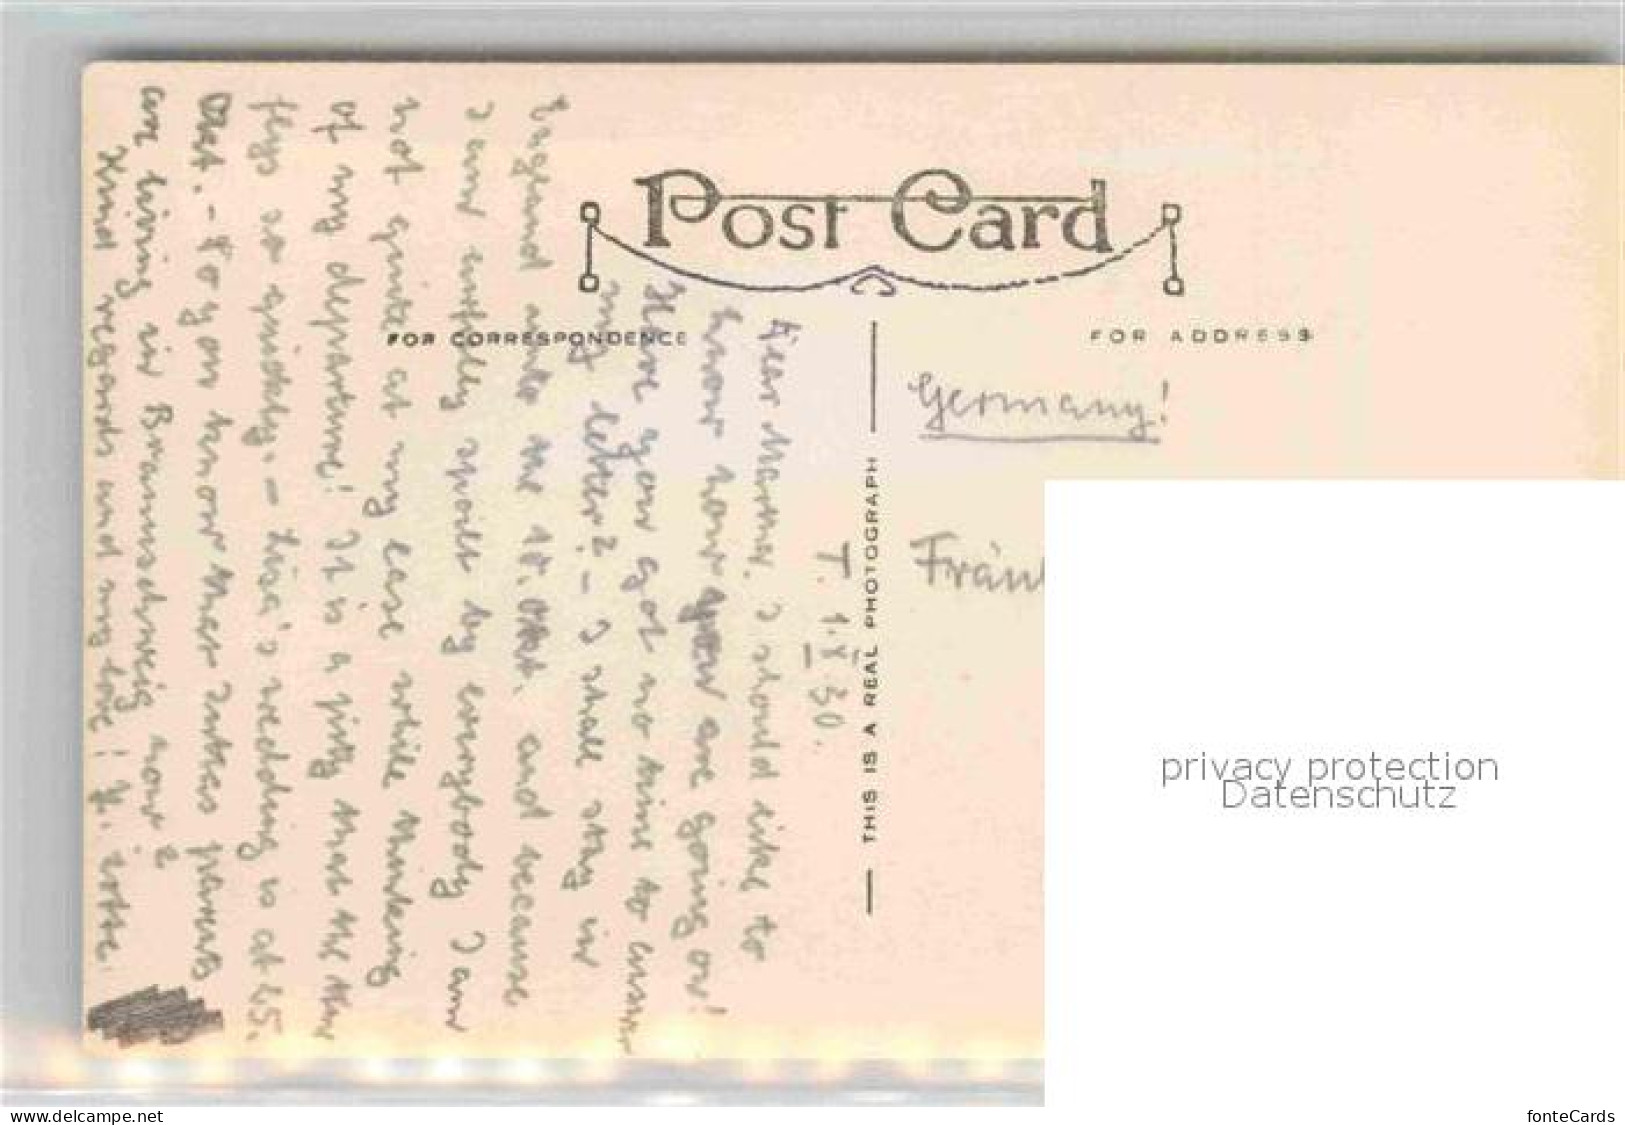 Post Card
FOR CORRESPONDENCE
FOR ADDRESS
THIS IS A REAL PHOTOGRAPH
Germany!
T. 1. X 30.
Dear Martha. I should like to
know how you are going on!
Have you got no time to answer
my letter? - I shall stay in
England unto the 18. Okt. and because
I am utterly spoilt by everybody I am
not quite at my ease while thinking
of my departure! It is a pity that the time
flys so quickly. - Lisa's wedding is at 25.
Okt. - Do you know that parents
are living in Braunschweig now?
Kind regards and my love!
privacy protection
Datenschutz
www.delcampe.net
fonteCards